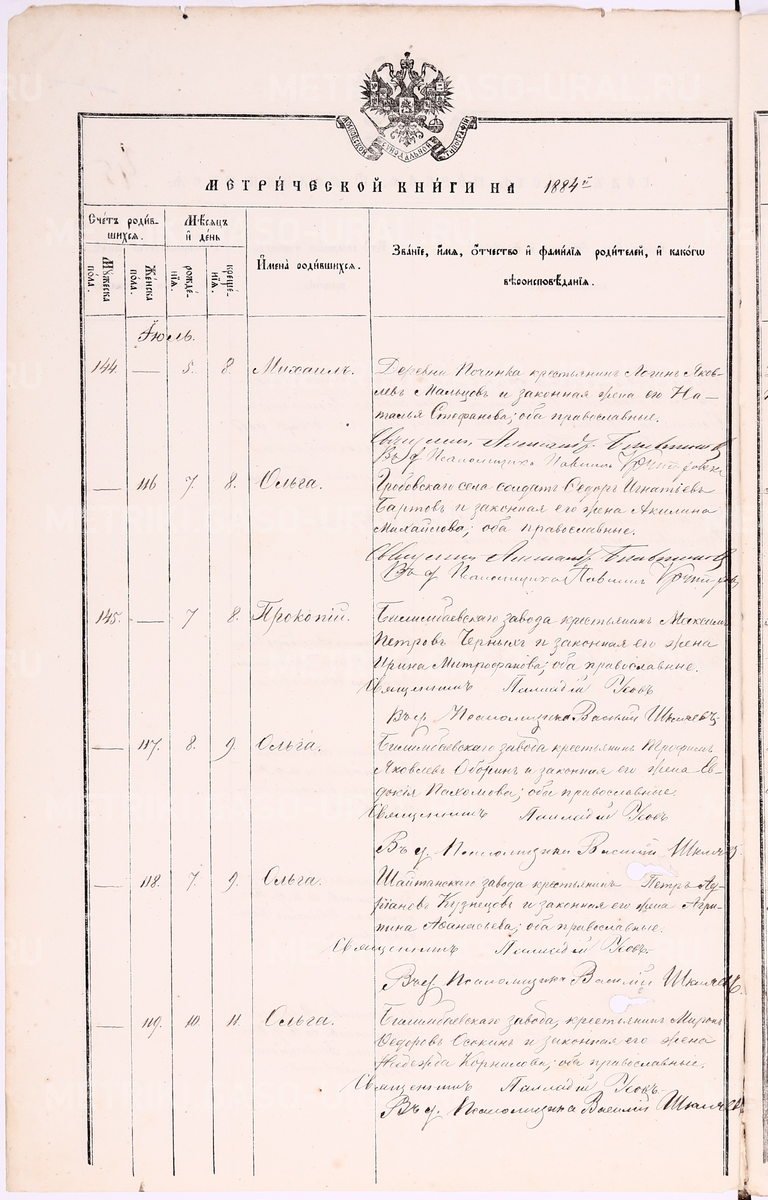 МЕТРИЧЕСКОЙ КНИГИ НА 1884 г
Счетъ родив-
шихся.
Мѣсяцъ
и день
Мужеска
пола.
Женска
пола.
рожде-
нія.
креще-
нія.
Имена родившихся.
Званіе, имя, отчество и фамилія родителей, и какого
вѣроисповѣданія.
Іюль.
144. — 5. 8. Михаилъ. Деревни Починка крестьянинъ Логинъ Яков-
левъ Мальцовъ и законная жена его На-
талья Стефанова; оба православные.
Священникъ
Въ д. Псаломщика
— 116 7. 8. Ольга. Гробовскаго села солдатъ Ѳедоръ Игнатьевъ
Бартовъ и законная его жена Акилина
Михайлова; оба православные.
Священникъ
Въ д. Псаломщика
145. — 7 8. Прокопій. Билимбаевскаго завода крестьянинъ Максимъ
Петровъ Черныхъ и законная его жена
Ирина Митрофанова; оба православные.
Священникъ Палладій Усовъ
Въ д. Псаломщика Василій Шкляевъ
— 117. 8. 9. Ольга. Билимбаевскаго завода крестьянинъ Трофимъ
Яковлевъ Оборинъ и законная его жена Ев-
докія Пахомова; оба православные.
Священникъ Палладій Усовъ
Въ д. Псаломщика Василій Шкляевъ
— 118. 7. 9. Ольга. Шайтанскаго завода крестьянинъ Петръ Ад-
ріановъ Кузнецовъ и законная его жена Агри-
пина Аѳанасьева; оба православные.
Священникъ Палладій Усовъ.
Въ д. Псаломщика Василій Шкляевъ.
— 119. 10. 11. Ольга. Билимбаевскаго завода, крестьянинъ Миронъ
Ѳедоровъ Осокинъ и законная его жена
Надежда Корнилова; оба православные.
Священникъ Палладій Усовъ.
Въ д. Псаломщика Василій Шкляевъ